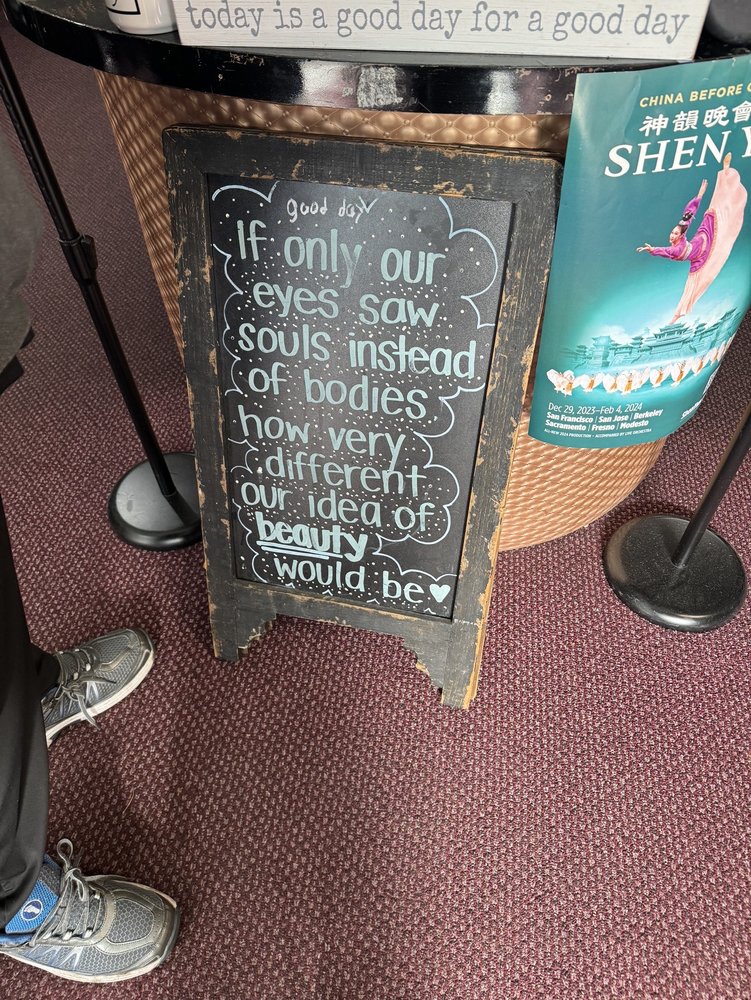 today is a good day for a good day
good day
If only our
eyes saw
souls instead
of bodies
how very
different
our idea of
beauty
would be
CHINA BEFORE
神韻晚會
SHEN
Dec 29, 2023–Feb 4, 2024
San Francisco | San Jose | Berkeley
Sacramento | Fresno | Modesto
ALL-NEW 2024 PRODUCTION • ACCOMPANIED BY LIVE ORCHESTRA